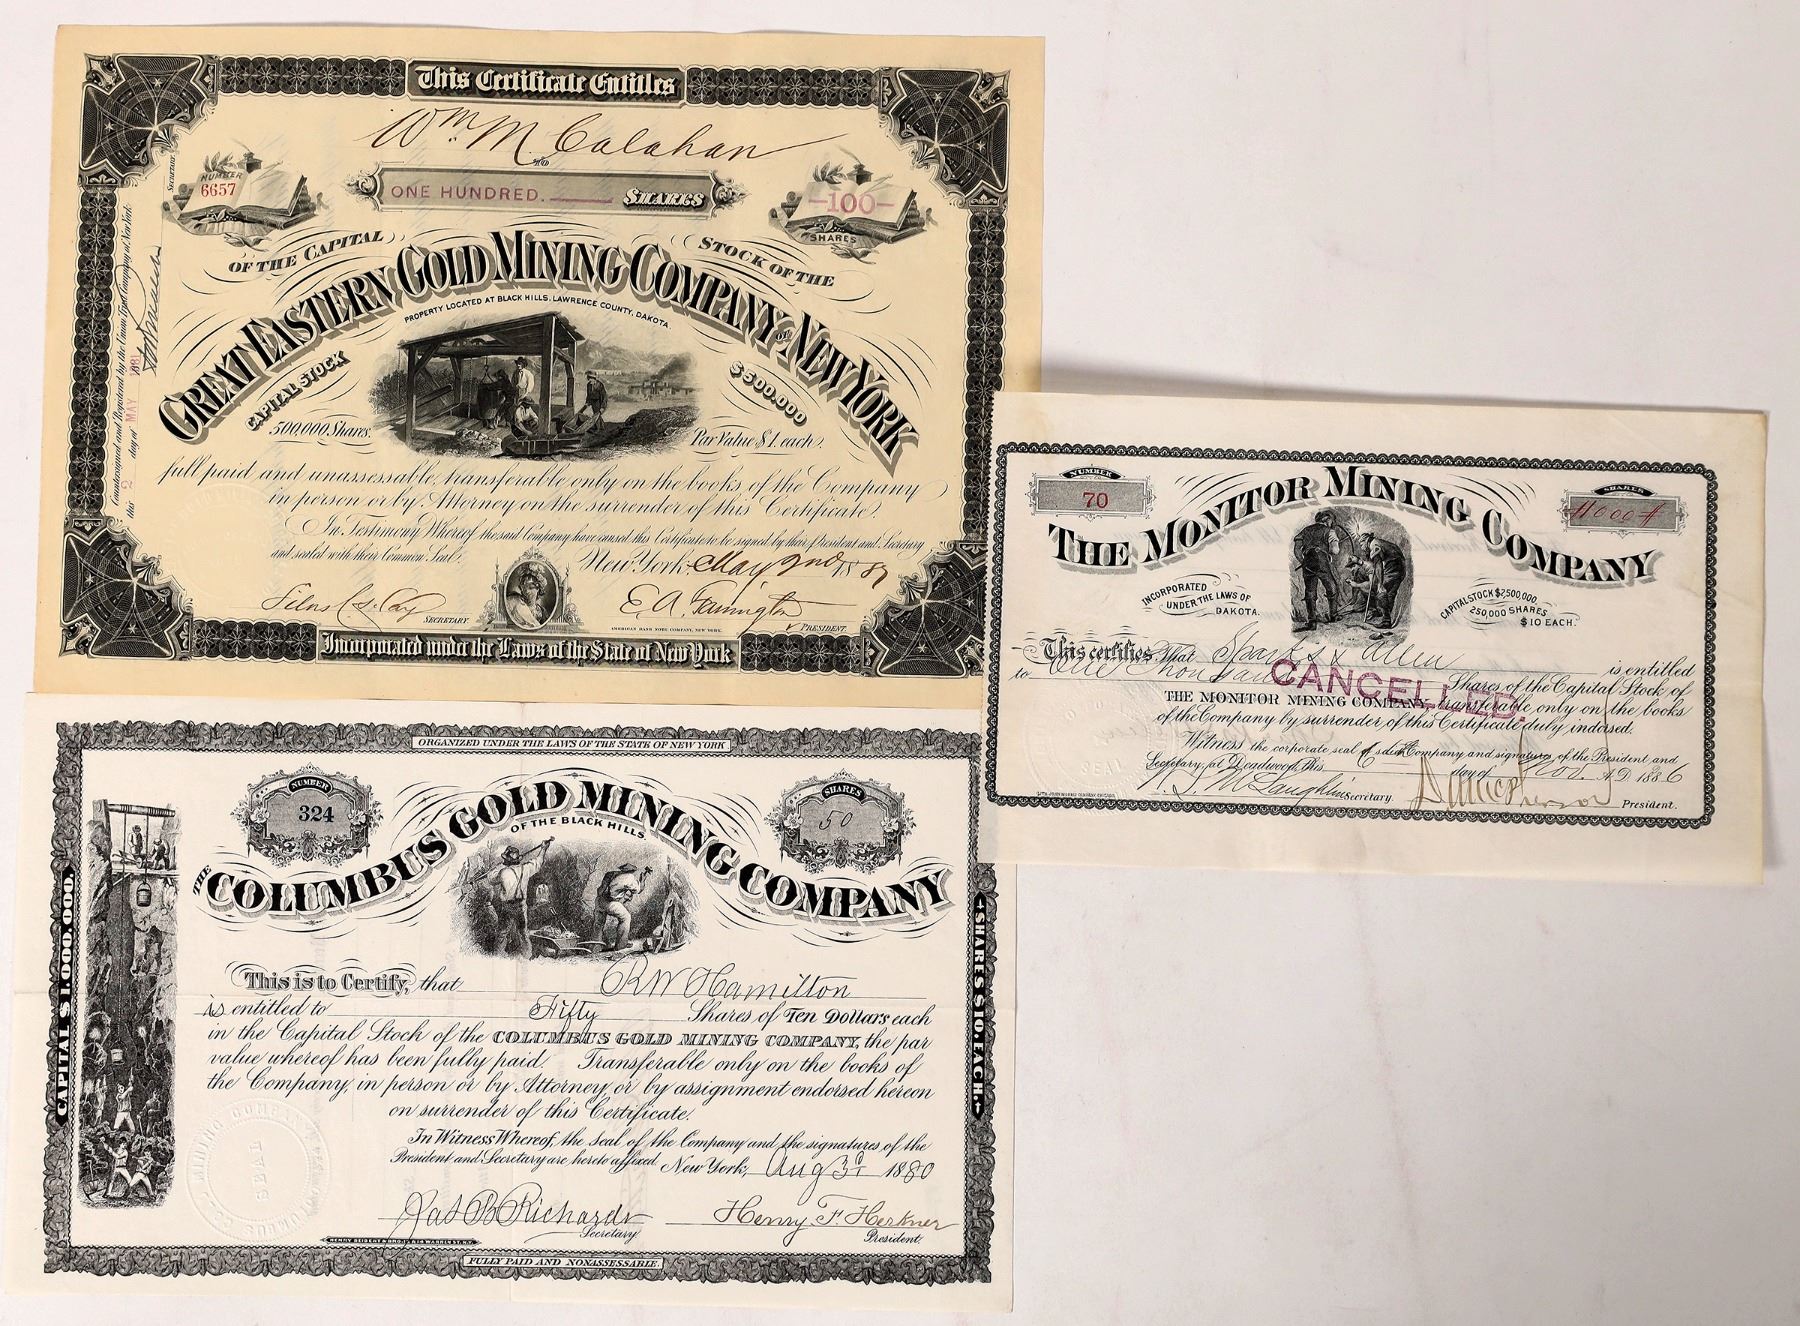 This Certificate Entitles
Wm. M. Calahan
TO
NUMBER
6657
ONE HUNDRED. SHARES
-100-
SHARES
OF THE CAPITAL STOCK OF THE
GREAT EASTERN GOLD MINING COMPANY OF NEW YORK
PROPERTY LOCATED AT BLACK HILLS, LAWRENCE COUNTY, DAKOTA.
CAPITAL STOCK $500,000
500,000 Shares. Par Value $1 each,
full paid and unassessable, transferable only on the books of the Company
in person or by Attorney on the surrender of this Certificate.
In Testimony Whereof the said Company have caused this Certificate to be signed by their President and Secretary
and sealed with their Common Seal.
New York May 2nd 1881
SECRETARY.
E.A. Farrington
PRESIDENT
AMERICAN BANK NOTE COMPANY, NEW YORK.
Incorporated under the Laws of the State of New York
Countersigned and Registered by the Union Trust Company of New York
this 2 day of MAY 1881
SECRETARY.
NUMBER
70
SHARES
#1000#
THE MONITOR MINING COMPANY
INCORPORATED
UNDER THE LAWS OF
DAKOTA.
CAPITAL STOCK $2,500,000.
250,000 SHARES
$10 EACH.
This certifies that Sparks & Allen is entitled
to One Thousand Shares of the Capital Stock of
CANCELLED.
THE MONITOR MINING COMPANY, transferable only on the books
of the Company by surrender of this Certificate duly indorsed.
Witness the corporate seal of said Company and signatures of the President and
Secretary, at Deadwood, this day of Nov. A.D. 1886
SEAL
McLaughlin Secretary.
President.
ORGANIZED UNDER THE LAWS OF THE STATE OF NEW YORK
NUMBER
324
SHARES
50
THE COLUMBUS GOLD MINING COMPANY
OF THE BLACK HILLS
CAPITAL $1,000,000.
SHARES $10. EACH.
This is to Certify, that R W Hamilton
is entitled to Fifty Shares of Ten Dollars each
in the Capital Stock of the COLUMBUS GOLD MINING COMPANY, the par
value whereof has been fully paid. Transferable only on the books of
the Company, in person or by Attorney, or by assignment endorsed hereon
on surrender of this Certificate.
In Witness Whereof, the Seal of the Company and the signatures of the
President and Secretary are hereto affixed. New York, Aug 3d 1880
SEAL
Jas B Richards
Secretary
Henry F. Herkner
President.
FULLY PAID AND NONASSESSABLE.